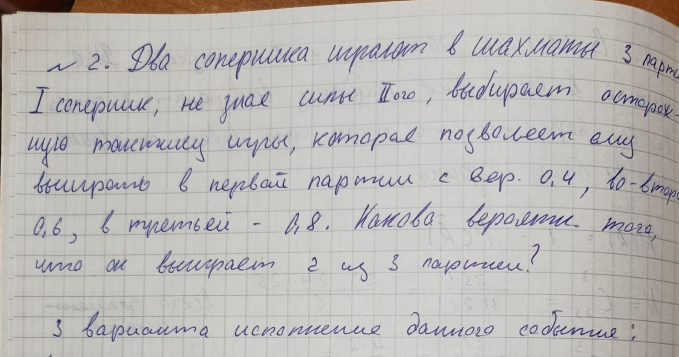 № 2. Два соперника играют в шахматы 3 парти
I соперник, не зная силы IIого, выбирает осторож-
ную тактику игры, которая позволяет ему
выиграть в первой партии с вер. 0,4, во-втор
0,6, в третьей - 0,8. Какова вероятн. того,
что он выиграет 2 из 3 партий?
3 варианта исполнения данного события: